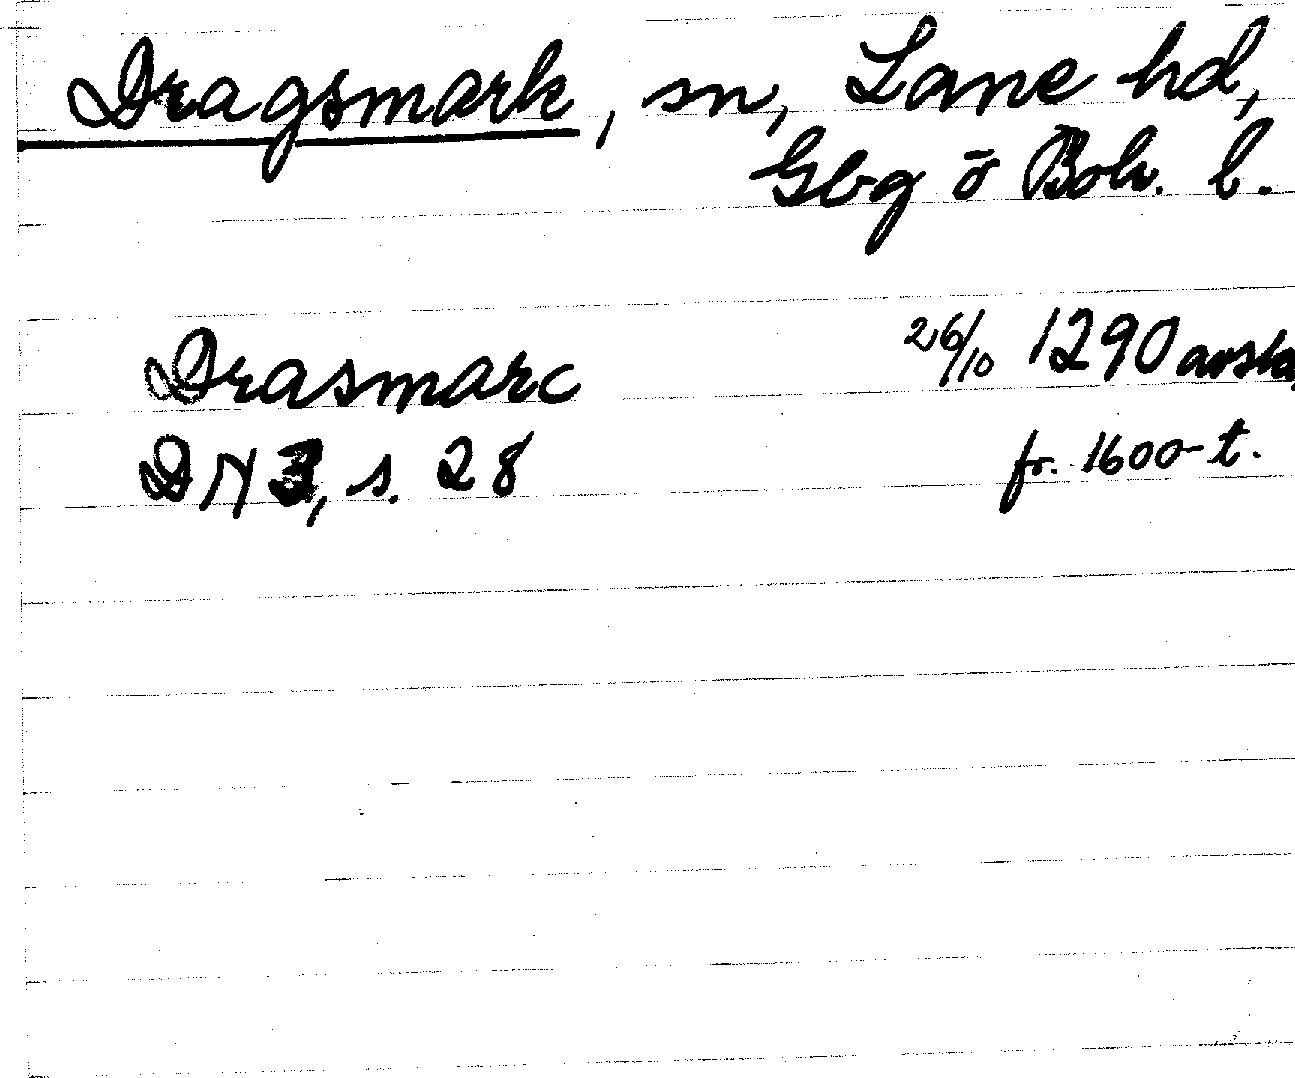 Dragsmark, sn, Lane hd,
Gbg o Boh. l.
Drasmarc 26/10 1290 avskr.
DN 3, s. 28 fr. 1600-t.